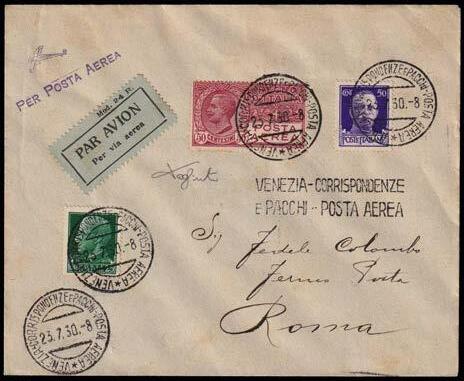 PER POSTA AEREA
Mod. 24 R.
PAR AVION
Per via aerea
50 CENTESIMI
POSTA
AEREA
VENEZIA-CORRISPONDENZE E PACCHI-POSTA AEREA
23.7.30.-8
50
POSTE ITALIANE
VENEZIA-CORRISPONDENZE E PACCHI-POSTA AEREA
.7.30.-8
VENEZIA-CORRISPONDENZE
E PACCHI--POSTA AEREA
VENEZIA-CORRISPONDENZE E PACCHI-POSTA AEREA
30.-8
Sig Fedele Colombo
Fermo Posta
Roma
VENEZIA-CORRISPONDENZE E PACCHI-POSTA AEREA
23.7.30.-8